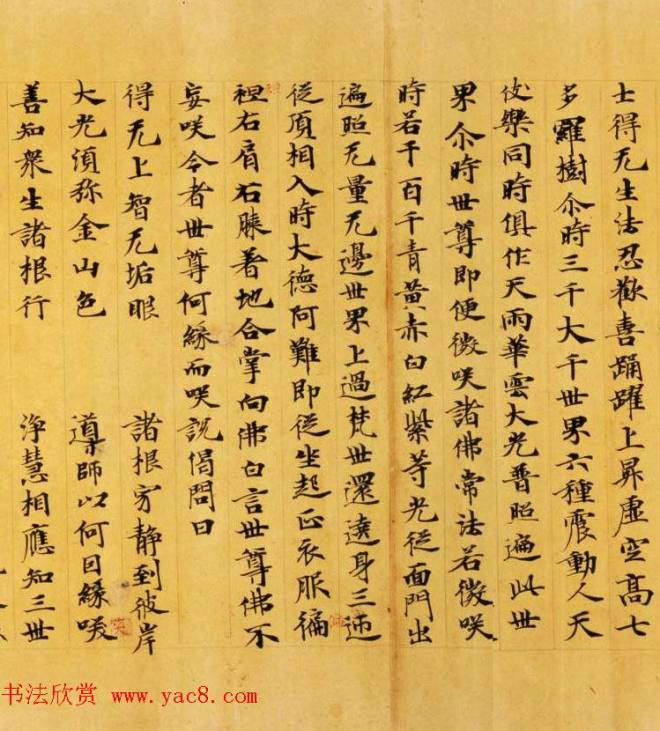 士得无生法忍歡喜踊躍上昇虛空髙七
多羅樹尒時三千大千世界六種震動人天
伎樂同時俱作天雨華雲大光普照遍此世
界尒時世尊即便微咲諸佛常法若微咲
時若千百千青黄赤白紅紫等光従面門出
遍照无量无邊世界上過梵世還遶身三迊
従頂相入時大德阿難即従坐起正衣服徧
袒右肩右膝著地合掌向佛白言世尊佛不
妄咲今者世尊何縁而咲説偈問曰
得无上智无垢眼 諸根穷静到彼岸
大光須弥金山色 導師以何因縁咲
善知衆生諸根行 浄慧相應知三世
书法欣赏 www.yac8.com